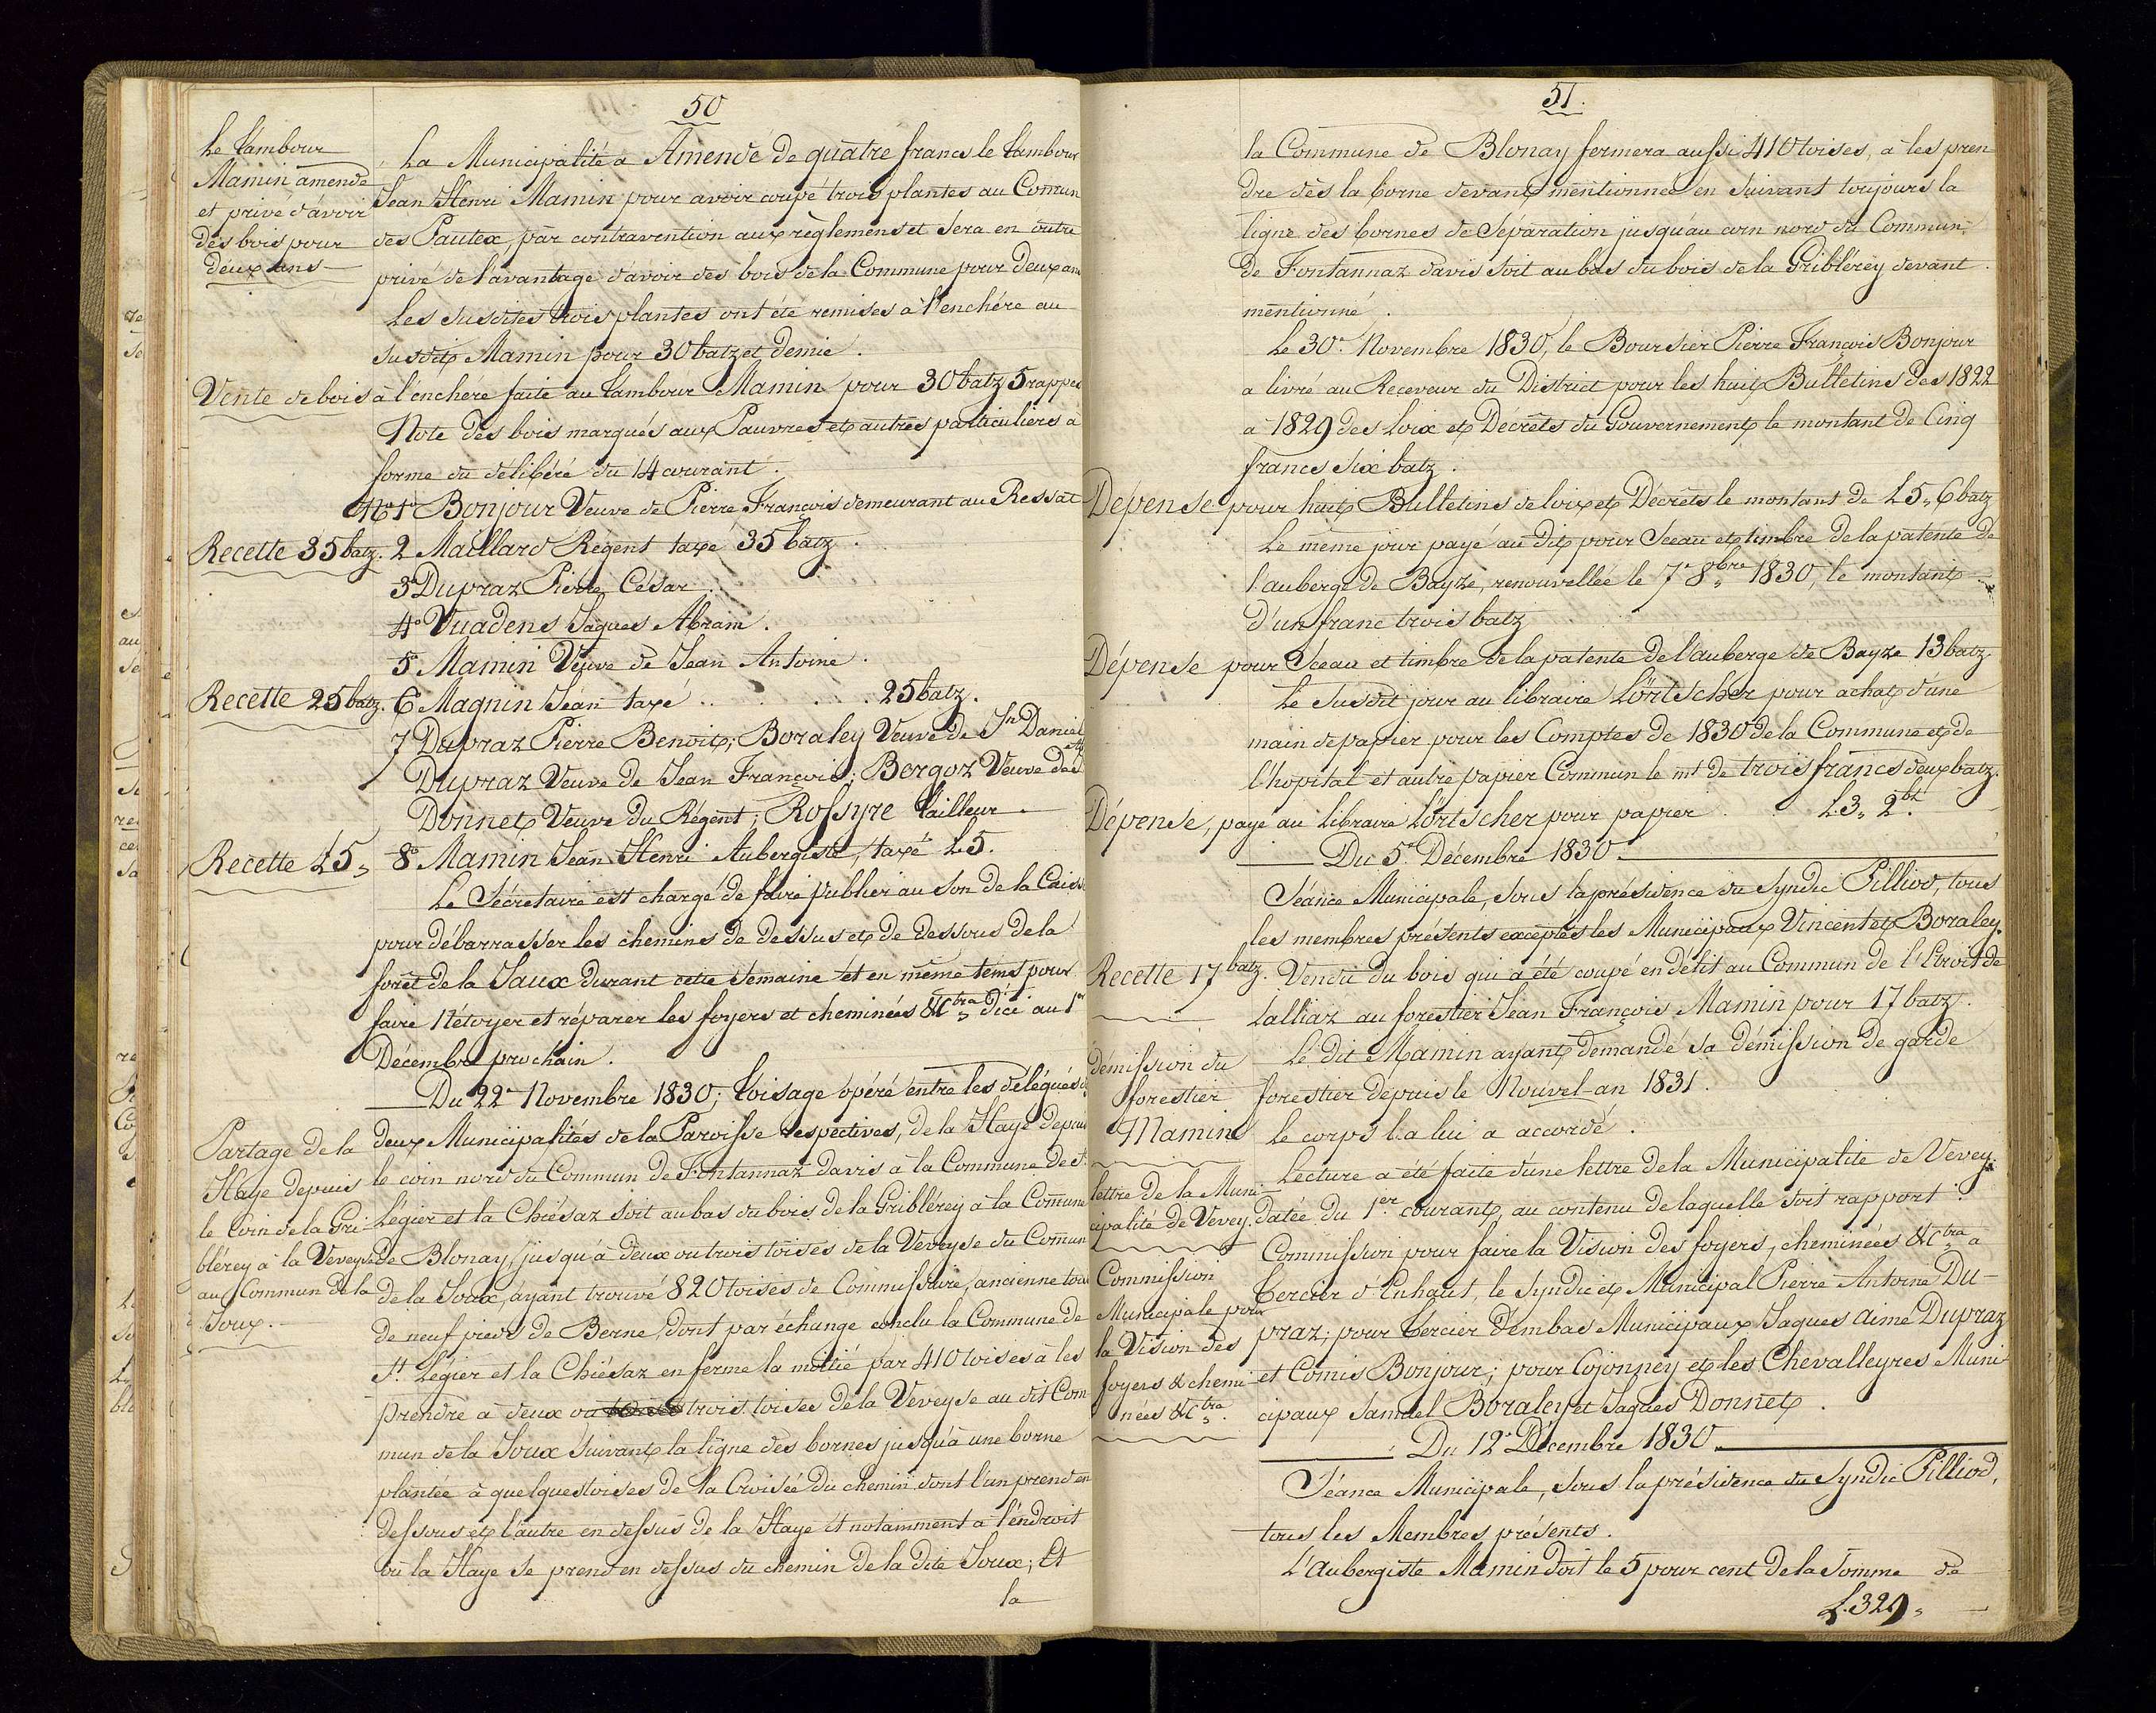 50
Le tambour
Mamin amendé
et privé d'avoir
des bois pour
deux ans
La Municipalité a Amendé de quatre francs le tambour
Jean Henri Mamin pour avoir coupé trois plantes au Comun
des Pautex, par contravention aux règlemens et sera en outre
privé de l'avantage d'avoir des bois de la Commune pour deux ans
Les susdites trois plantes ont été remises à l'enchére au
susdit Mamin pour 30 batz et demie.
Vente de bois à l'enchere faite au tambour Mamin pour 30 batz 5 rappes
Note des bois marqués aux Pauvres et autres particuliers à
forme du délibéré du 14 courant.
No 1o Bonjour Veuve de Pierre François demeurant au Ressat
Recette 35 batz. 2 Maillard Régent taxé 35 batz.
3o Dupraz Pierre César
4o Vuadens Jaques Abram.
5o Mamin Veuve de Jean Antoine.
Recette 25 batz. 6 Magnin Jean taxé . . . . . 25 batz.
7 Dupraz Pierre Benoit; Boraley Veuve de Jn Daniel
Dupraz Veuve de Jean François; Bergoz Veuve de
Donnet Veuve du Régent; Rossyre tailleur
Recette L5„ 8o Mamin Jean Henri Aubergiste, taxé L5.
Le Sécretaire est chargé de faire publier au son de la Caisse
pour débarrasser les chemins de dessus et de dessous de la
forêt de la Jaux durant cette semaine et en même tems pour
faire Nétoyer et réparer les foyers et cheminées &Ctra„ d'ici au 1er
Décembre prochain.
Du 22e Novembre 1830; toisage opéré entre les délégués
Partage de la
Haye depuis
le Coin de la Gri-
blérey à la Veveyse
au Commun de la
Joux.
deux Municipalités de la Paroisse respectives, de la Haye depuis
le coin nord du Commun de Fontannaz davis à la Commune de St
Légier et la Chiésaz soit au bas du bois de la Griblérey à la Comune
de Blonay, jusqu'à deux ou trois toises de la Veveyse du Comun
de la Joux, ayant trouvé 820 toises de Commissaire, ancienne toise
de neuf pieds de Berne, dont par échange conclu la Commune de
St. Légier et la Chiésaz en ferme la moitié par 410 toises à les
prendre à deux ou trois toises de la Veveyse au dit Com-
mun de la Joux suivant la ligne des bornes jusqu'à une borne
plantée à quelques toises de la Croisée du chemin dont l'un prend en
dessous et l'autre en dessus de la Haye et notamment à l'endroit
où la Haye se prend en dessus du chemin de la dite Joux; Et
la
51.
la Commune de Blonay fermera aussi 410 toises, à les pren
dre dès la borne devant mentionnée en suivant toujours la
ligne des bornes de Séparation jusqu'au coin nord du Commun
de Fontannaz davis soit au bas du bois de la Griblérey devant
mentionné.
Le 30e. Novembre 1830, le Boursier Pierre François Bonjour
a livré au Receveur du District pour les huit Bulletins des 1822
à 1829 des Loix et Décrets du Gouvernement le montant de Cinq
francs six batz.
Dépense pour huit Bulletins de loix et Décrets le montant de L5„ 6 batz
Le même jour payé au dit pour Sceau et timbre de la patente de
l'auberge de Bayze, renouvellée le 7e 8bre 1830, le montant
d'un franc trois batz
Dépense pour Sceau et timbre de la patente de l'auberge de Bayze 13 batz.
Le susdit jour au libraire Lörtscher pour achat d'une
main de papier pour les Comptes de 1830 de la Commune et de
l'hopital et autre papier Commun le mt de trois francs deux batz.
Dépense, payé au libraire Lörtscher pour papier . L.3„ 2bz.
Du 5e Décembre 1830.
Séance Municipale, sous la présidence du Syndic Pilliod, tous
les membres présents exceptés les Municipaux Vincent et Boraley.
Recette 17 batz. Vendu du bois qui a été coupé en délit au Commun de l'Etroit de
Lalliaz au forestier Jean François Mamin pour 17 batz.
démission du
forestier
Mamin
Le dit Mamin ayant demandé sa démission de garde
forestier depuis le Nouvel-an 1831.
Le corps l.a lui a accordé.
lettre de la Muni-
cipalité de Vevey.
Lecture a été faite d'une lettre de la Municipalité de Vevey.
datée du 1er. courant, au contenu de laquelle soit rapport.
Commission
Municipale pour
la Vision des
foyers & chemi-
nées &Ctra„.
Commission pour faire la Vision des foyers, cheminées &Ctra„ à
Tercier d'Enhaut, le Syndic et Municipal Pierre Antoine Du-
praz; pour Tercier d'embas Municipaux Jaques Aimé Dupraz
et Comis Bonjour; pour Cojonney et les Chevalleyres Muni-
cipaux Samuel Boraley et Jaques Donnet.
Du 12e Décembre 1830.
Séance Municipale, sous la présidence du Syndic Pilliod,
tous les Membres présents.
L'Aubergiste Mamin doit le 5 pour cent de la somme de
L.329„